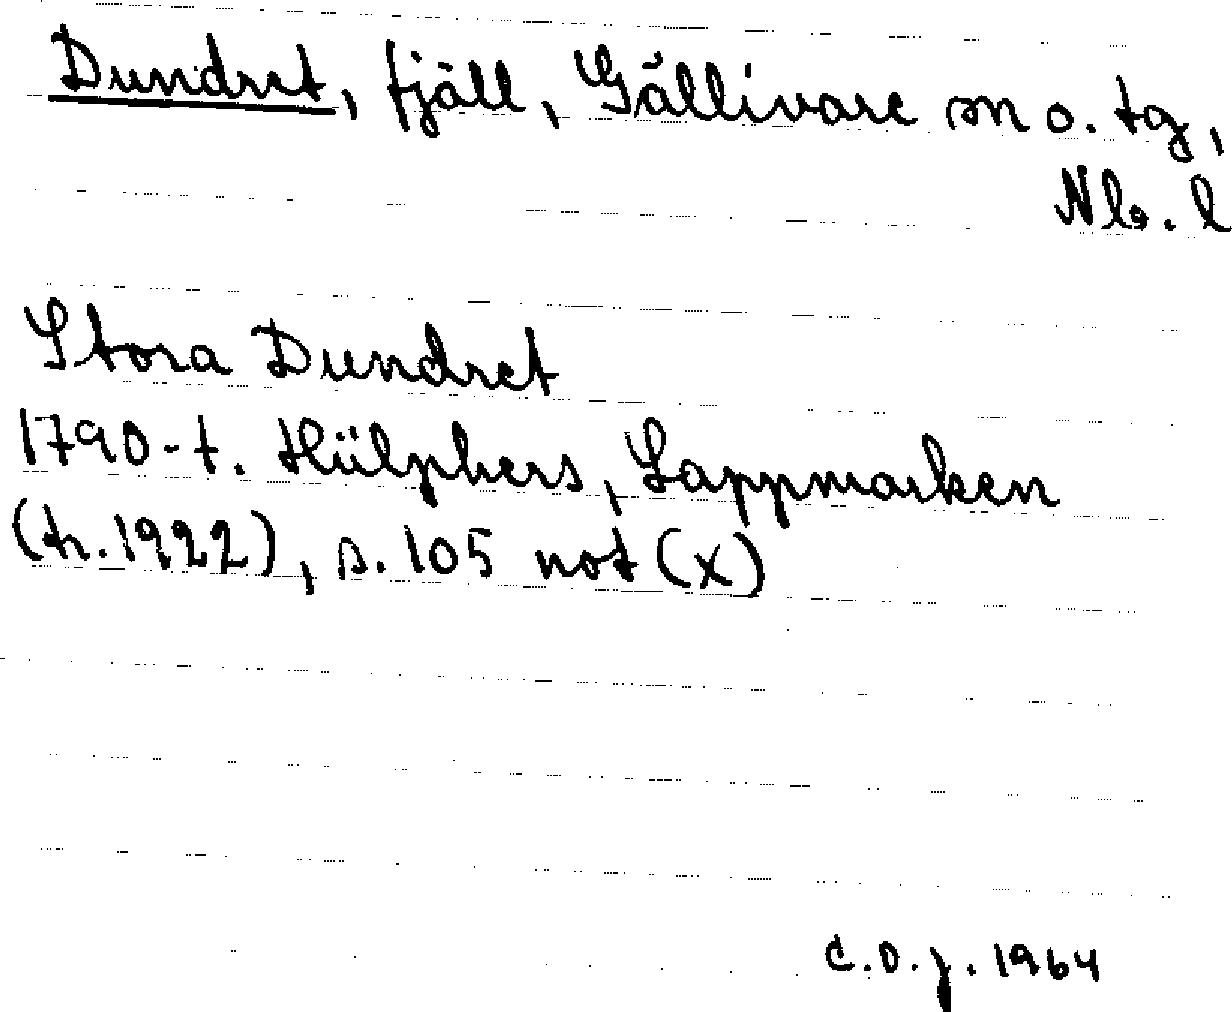 Dundret, fjäll, Gällivare sn o. tg,
Nb. l
Stora Dundret
1790-t. Hülphers, Lappmarken
(tr. 1922), s. 105 not (x)
C.O.J. 1964